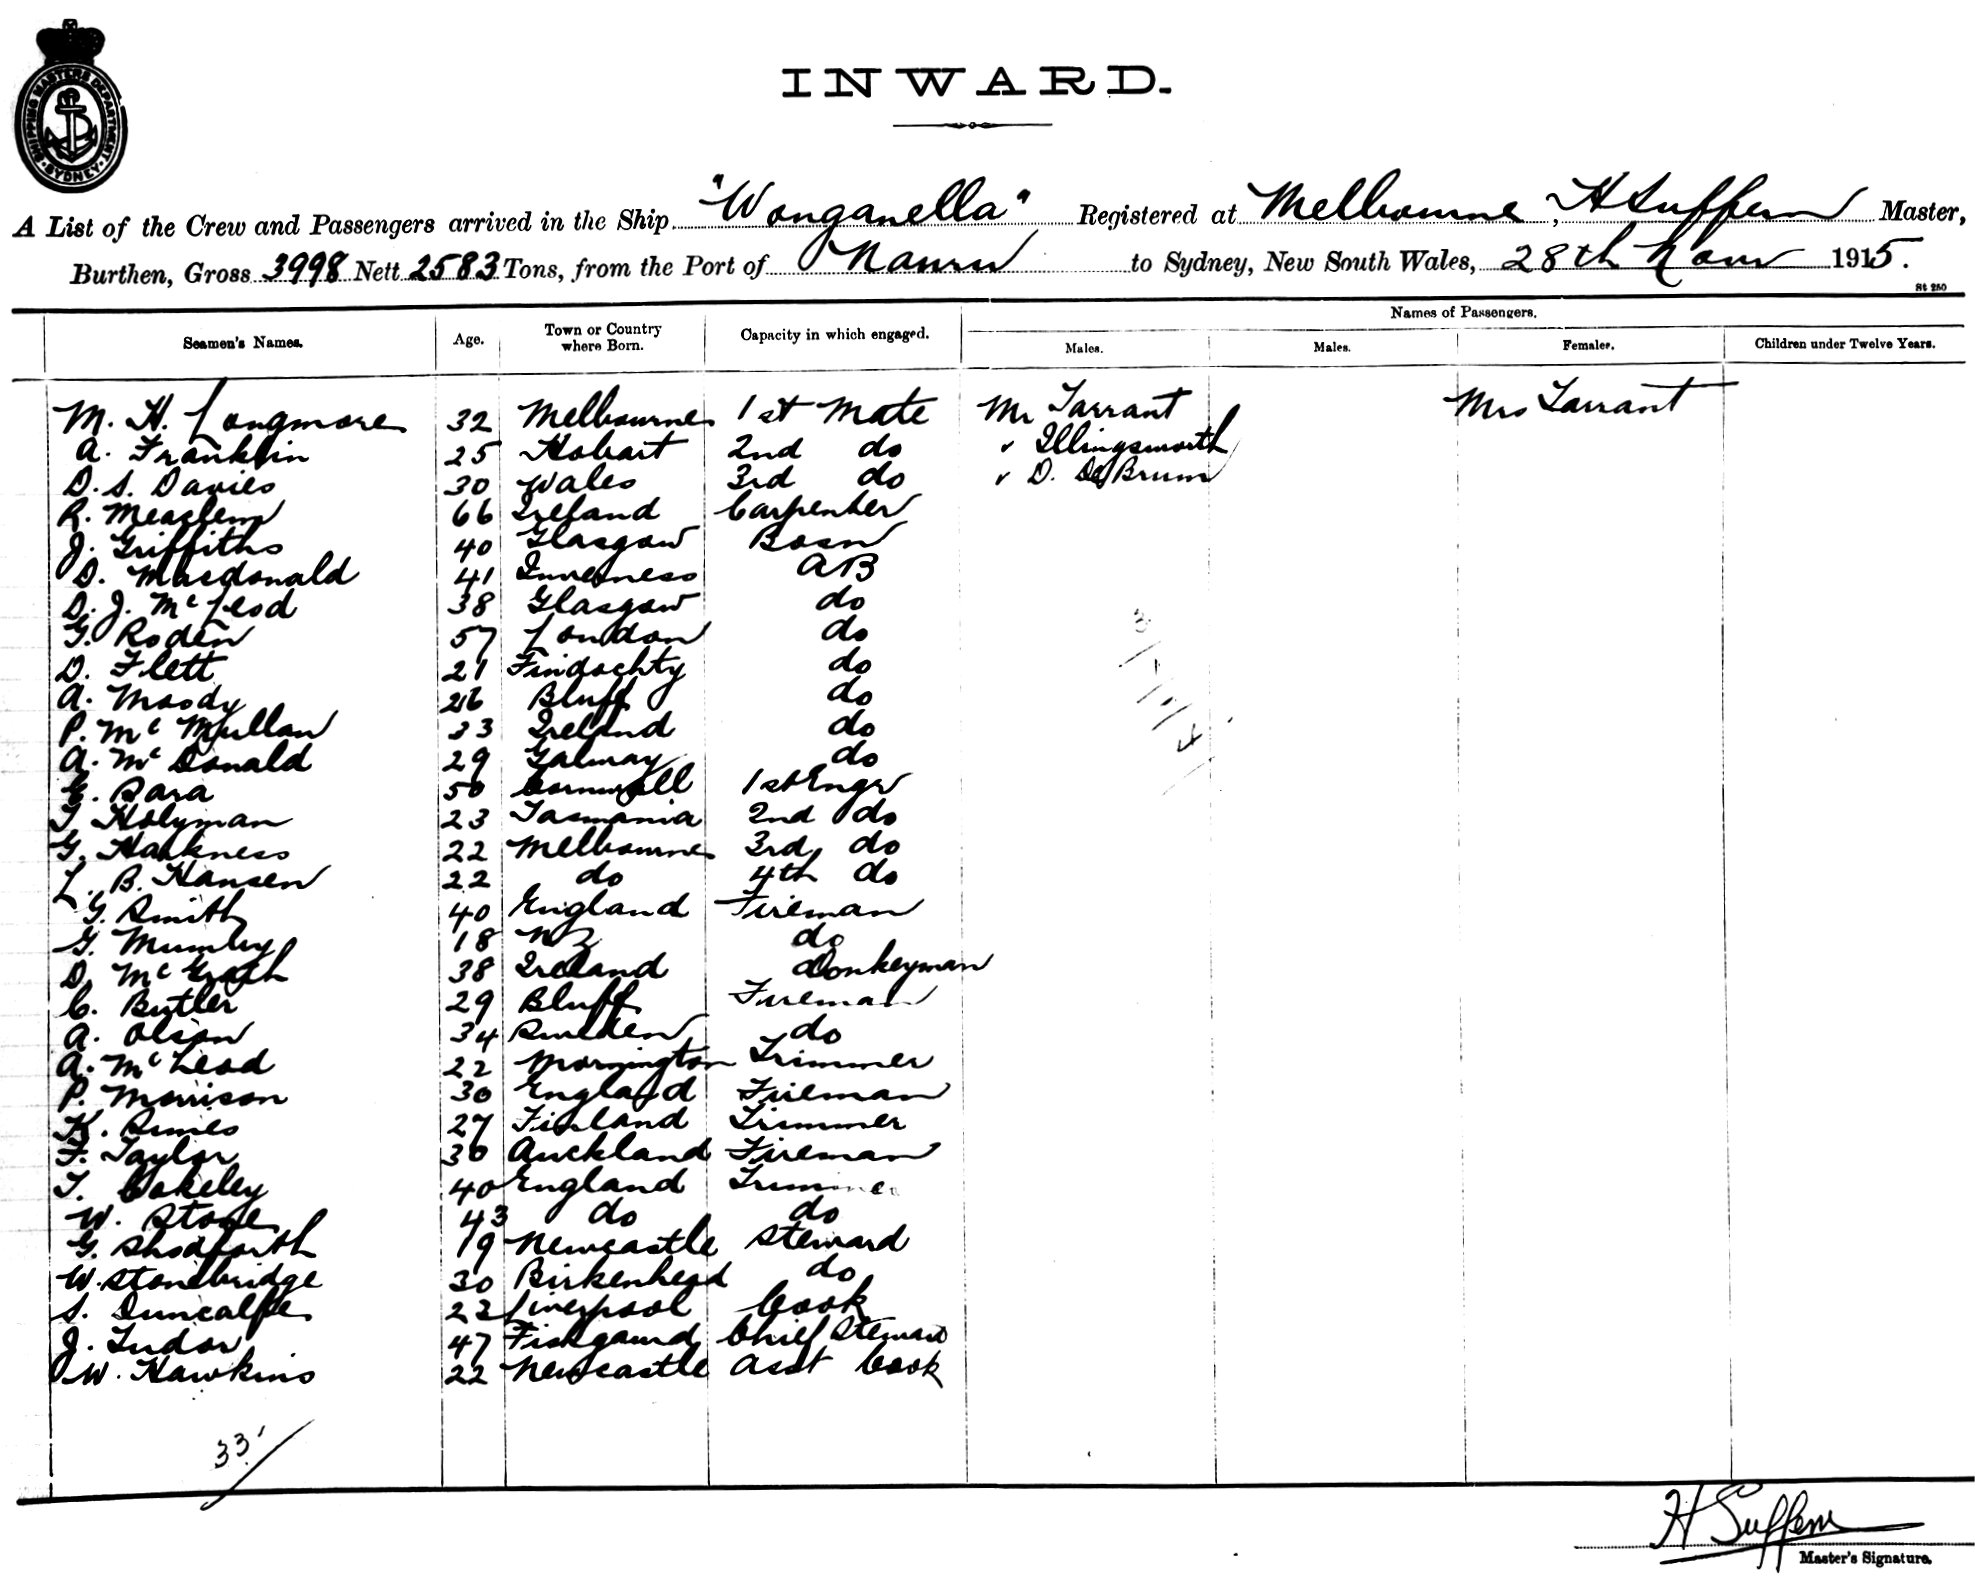 SHIPPING MASTERS DEPARTMENT · SYDNEY ·
INWARD.
A List of the Crew and Passengers arrived in the Ship "Wonganella" Registered at Melbourne, H Suffern Master,
Burthen, Gross 3998 Nett 2583 Tons, from the Port of Nauru to Sydney, New South Wales, 28th 1915.
St 250
Seamen's Names. Age. Town or Country where Born. Capacity in which engaged. Names of Passengers.
Males. Males. Females. Children under Twelve Years.
M. H. Longmore 32 Melbourne 1st Mate Mr Tarrant Mrs Tarrant
A. Franklin 25 Hobart 2nd do " Illingsworth
D. S. Davies 30 Wales 3rd do " D. De Brum
R. 66 Ireland Carpenter
J. Griffiths 40 Glasgow Bosn
D. Macdonald 41 Inverness AB
D. J. McLeod 38 Glasgow do
G. Roden 57 London do
D. Flett 21 Findochty do
A. Moody 26 Bluff do
P. McMullan 33 Ireland do
A. McDonald 29 Galway do
E. Sara 50 Cornwall 1st Engr
T Holyman 23 Tasmania 2nd do
G. Harkness 22 Melbourne 3rd do
L. B. Hansen 22 do 4th do
G. Smith 40 England Fireman
G. Mumby 18 NZ do
D. McGrath 38 Ireland Donkeyman
C. Butler 29 Bluff Fireman
A. Olson 34 Sweden do
A. McLeod 22 Mornington Trimmer
P. Morrison 30 England Fireman
K. 27 Finland Trimmer
F. Taylor 30 Auckland Fireman
T. Cokeley 40 England Trimmer
W. Stone 43 do do
G. Shodforth 19 Newcastle Steward
W. Stonebridge 30 Birkenhead do
S. Duncalfe 22 Liverpool Cook
J. Tudor 47 Fishgaurd Chief Steward
W. Hawkins 22 Newcastle Asst Cook
33
H Suffern
Master's Signature.